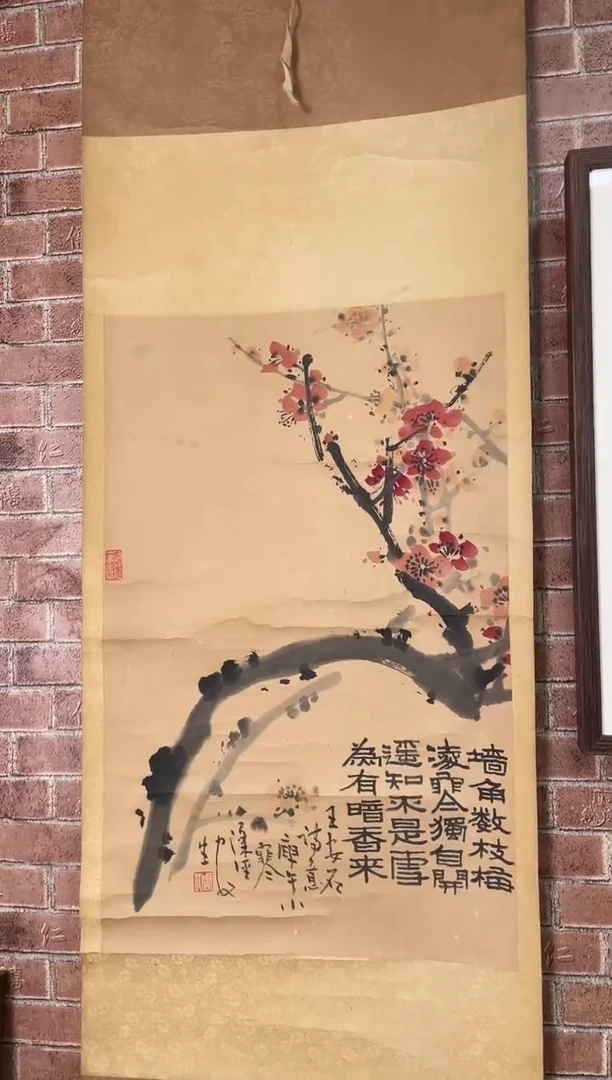 墙角数枝梅
凌寒独自開
遥知不是雪
為有暗香来
王安石
诗意
庚午小
寒